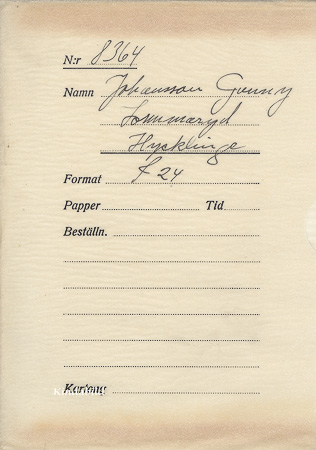 N:r 8364
Namn Johansson Gunny
Sommaryd
Hycklinge
Format F 24
Papper Tid
Beställn.
Kartong